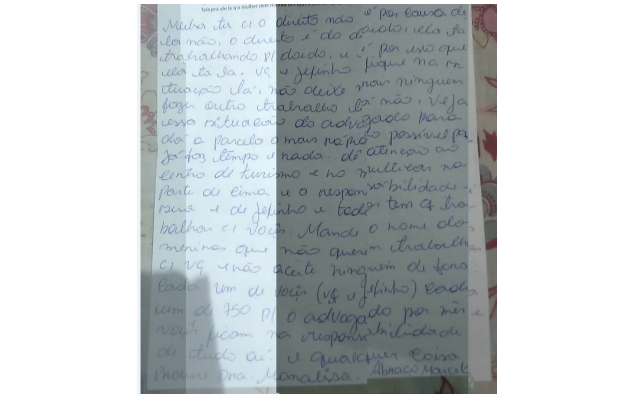 fala pra ele lá q a mulher dele
Melha ta c/ o direito não é por causa de
lá não, o direito é do doido, ela ta
trabalhando p/ doido, e é por isso que
ela ta la. vç e Jefinho fique na si
tuação lá, não deixe mais ninguem
fazer outro trabalho lá não, veja
essa situação do advogado para
dá a parcela o mais rápido possível pq
já faz tempo e nada. dê atenção ao
centro de turismo e no multicor na
parte de cima e a responsabilidade é
sua e de Jefinho e todos tem q tra
balhar c/ vocês. Mande o nome dos
meninos que não querem trabalhar
c/ vç e não aceite ninguem de fora.
Cada um de vocês (vç e Jefinho) cada
um dê 750 p/ o advogado por mês e
vocês ficam na responsabilidade
de tudo aí. e qualquer coisa
Procure Dra. Monalisa. Abraço